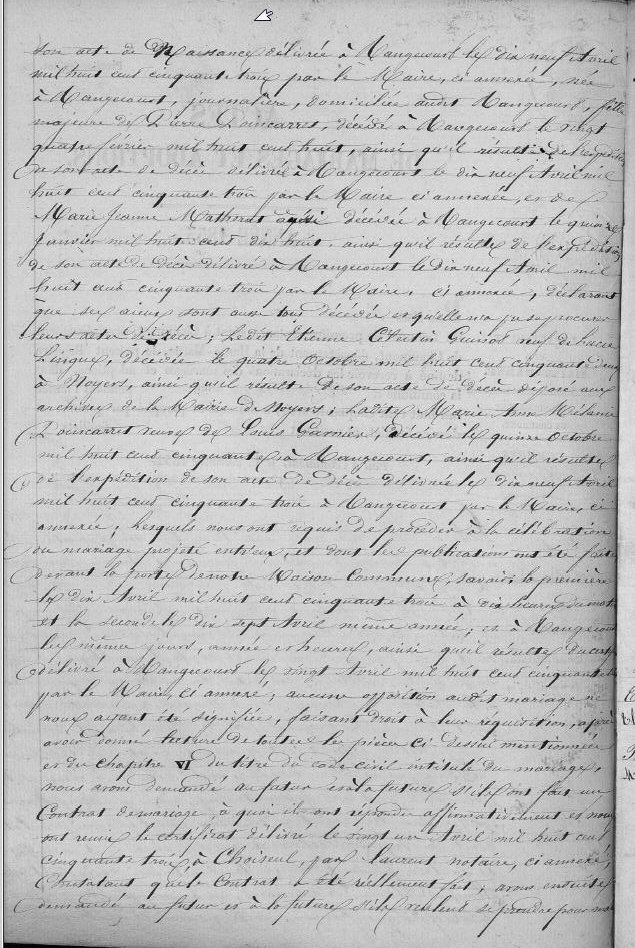 son acte de Naissance délivrée à Mangecourt le dix neuf Avril
mil huit cent cinquante trois par le Maire, ci annexée, née
à Mangecourt, journalière, domiciliée audit Mangecourt, fille
majeure de Pierre Poincarret, décédé à Mangecourt le vingt
quatre février mil huit cent huit, ainsi qu'il résulte de l'expédition
de son acte de décès délivré à Mangecourt le dix neuf Avril mil
huit cent cinquante trois par le Maire ci annexée, et de
Marie Jeanne aussi décédée à Mangecourt le quinze
Janvier mil huit cent dix huit, ainsi qu'il résulte de l'expédition
de son acte de décès délivré à Mangecourt le dix neuf Avril mil
huit cent cinquante trois par le Maire, ci annexée, déclarant
que ses aieux sont aussi tous décédés et qu'elle n'a pu se procurer
leurs actes de décès; Ledit Etienne Guinot veuf de
décédée le quatre Octobre mil huit cent cinquante deux
à Noyers, ainsi qu'il résulte de son acte de décès déposé aux
archives de la Mairie de Noyers; Ladite Marie Anne Mélanie
Poincarret veuve de Louis Garnier, décédé le quinze Octobre
mil huit cent cinquante à Mangecourt, ainsi qu'il résulte
de l'expédition de son acte de décès délivrée le dix neuf Avril
mil huit cent cinquante trois à Mangecourt par le Maire, ci
annexée; Lesquels nous ont requis de procéder à la célébration
du mariage projeté entr'eux, et dont les publications ont été faites
devant la porte de notre Maison Commune, savoir, la première
le dix Avril mil huit cent cinquante trois à dix heures du matin
et la seconde le dix sept Avril même année; et à Mangecourt
les même jours, année et heures, ainsi qu'il résulte du certificat
délivré à Mangecourt le vingt Avril mil huit cent cinquante trois
par le Maire, ci annexé; aucune opposition audit mariage ne
nous ayant été signifiée, faisant droit à leur réquisition, après
avoir donné lecture de toutes les pièces ci dessus mentionnées
et du chapitre VI du titre du code civil intitulé du mariage,
nous avons demandé au futur et à la future s'ils ont fait un
Contrat de mariage, à quoi ils ont répondu affirmativement et nous
ont remis le certificat délivré le vingt un Avril mil huit cent
cinquante trois, à Choiseul, par Laurent notaire, ci annexé,
Constatant que le Contrat a été réellement fait; avons ensuite
demandé au futur et à la future s'ils veulent se prendre pour